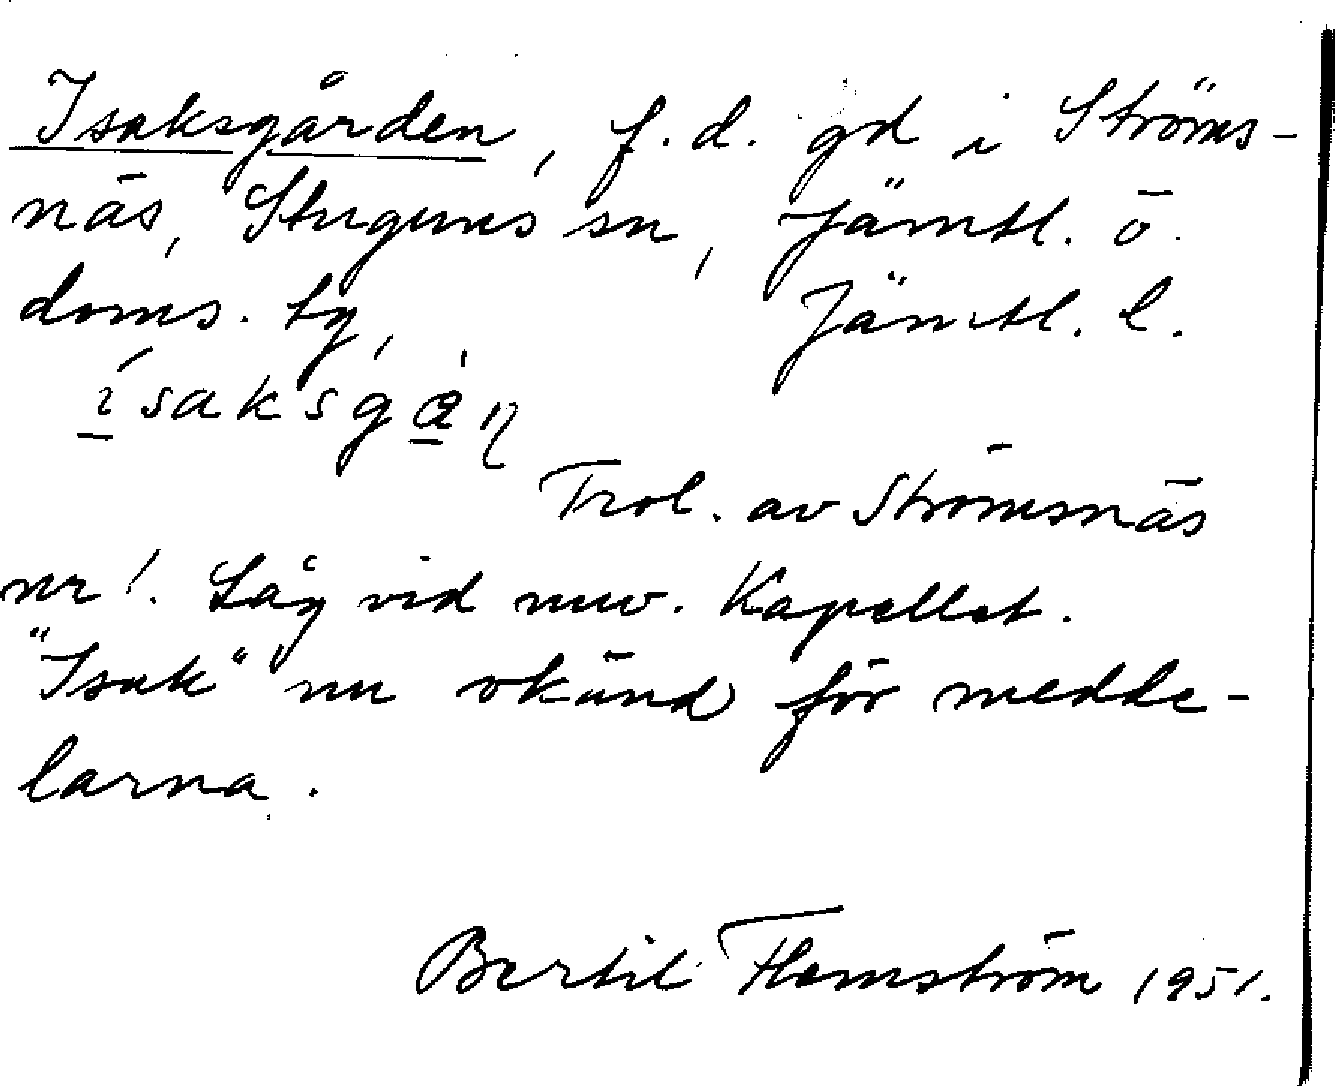 Isaksgården, f.d. gd i Ströms-
näs, Stuguns sn, Jämtl. ö.
doms. tg, Jämtl. l.
Trol. av Strömsnäs
nr 1. Låg vid nuv. Kapellet.
"Isak" nu okänd för medde-
larna.
Bertil Flemström 1951.